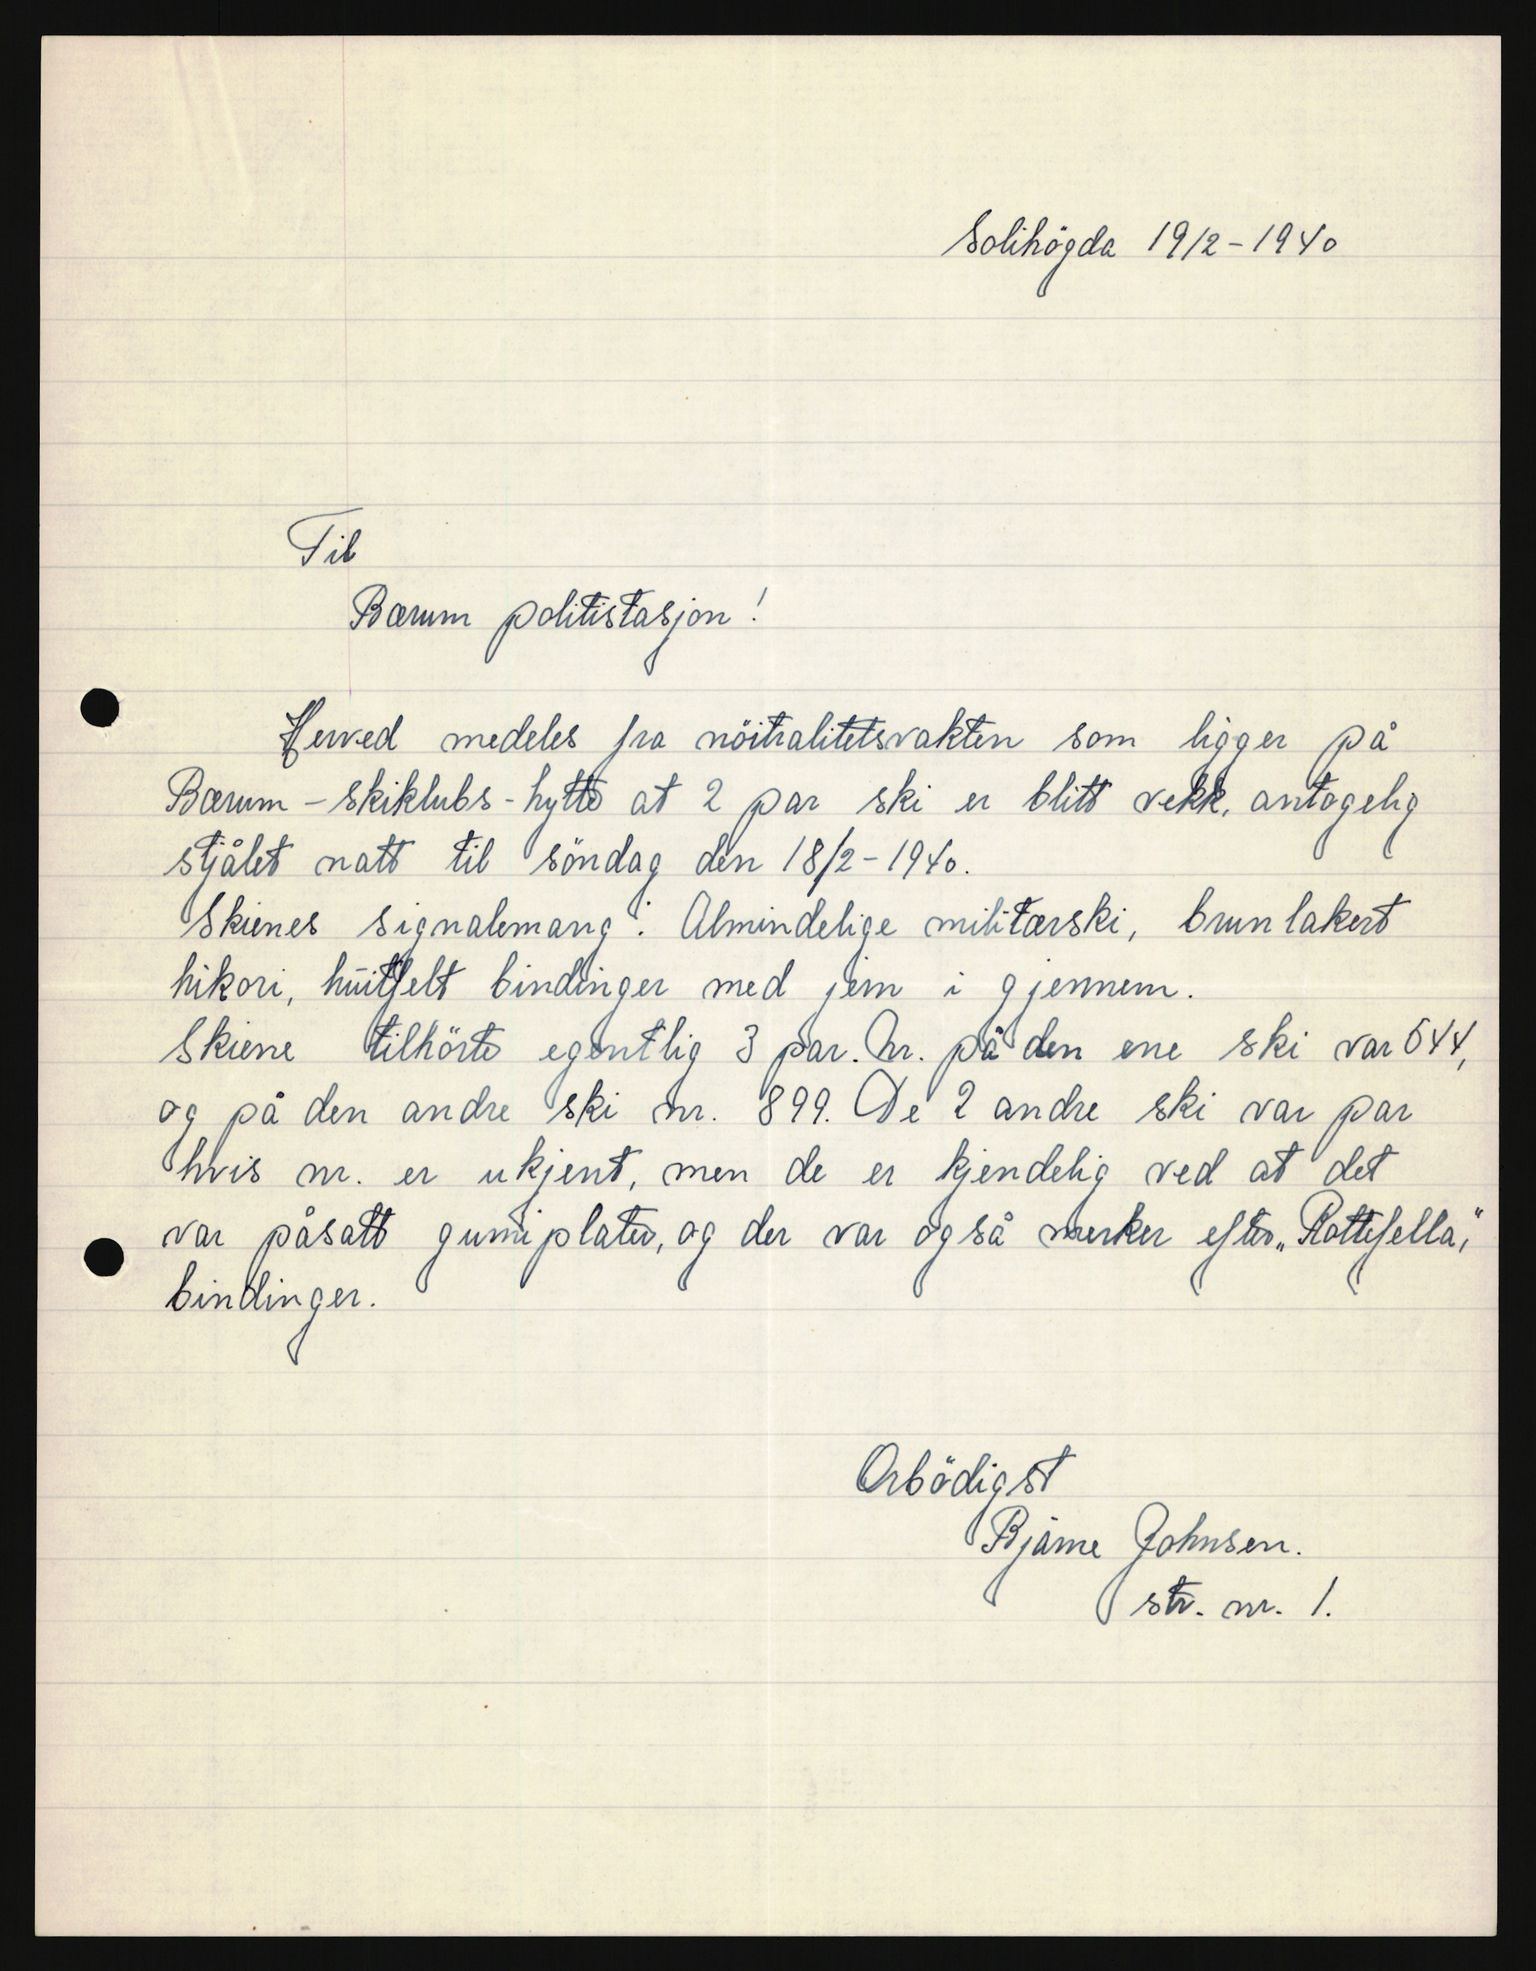 Solihögda 19/2-1940
Til
Bærum politistasjon!
Herved medeles fra nöitralitetsvakten som ligger på
Bærum-skiklubs-hytte at 2 par ski er blitt vekk, antagelig
stjålet natt til söndag den 18/2-1940.
Skienes signalemang: Almindelige militærski, brunlakert
hikori, hüitfelt bindinger med jern i gjennem.
Skiene tilhörte egentlig 3 par. Nr. på den ene ski var 644,
og på den andre ski nr. 899. De 2 andre ski var par
hvis nr. er ukjent, men de er kjendelig ved at det
var påsatt gumiplater, og der var også merker efter „Rottefella"
bindinger.
Ærbödigst
Bjarne Johnsen.
str. nr. 1.